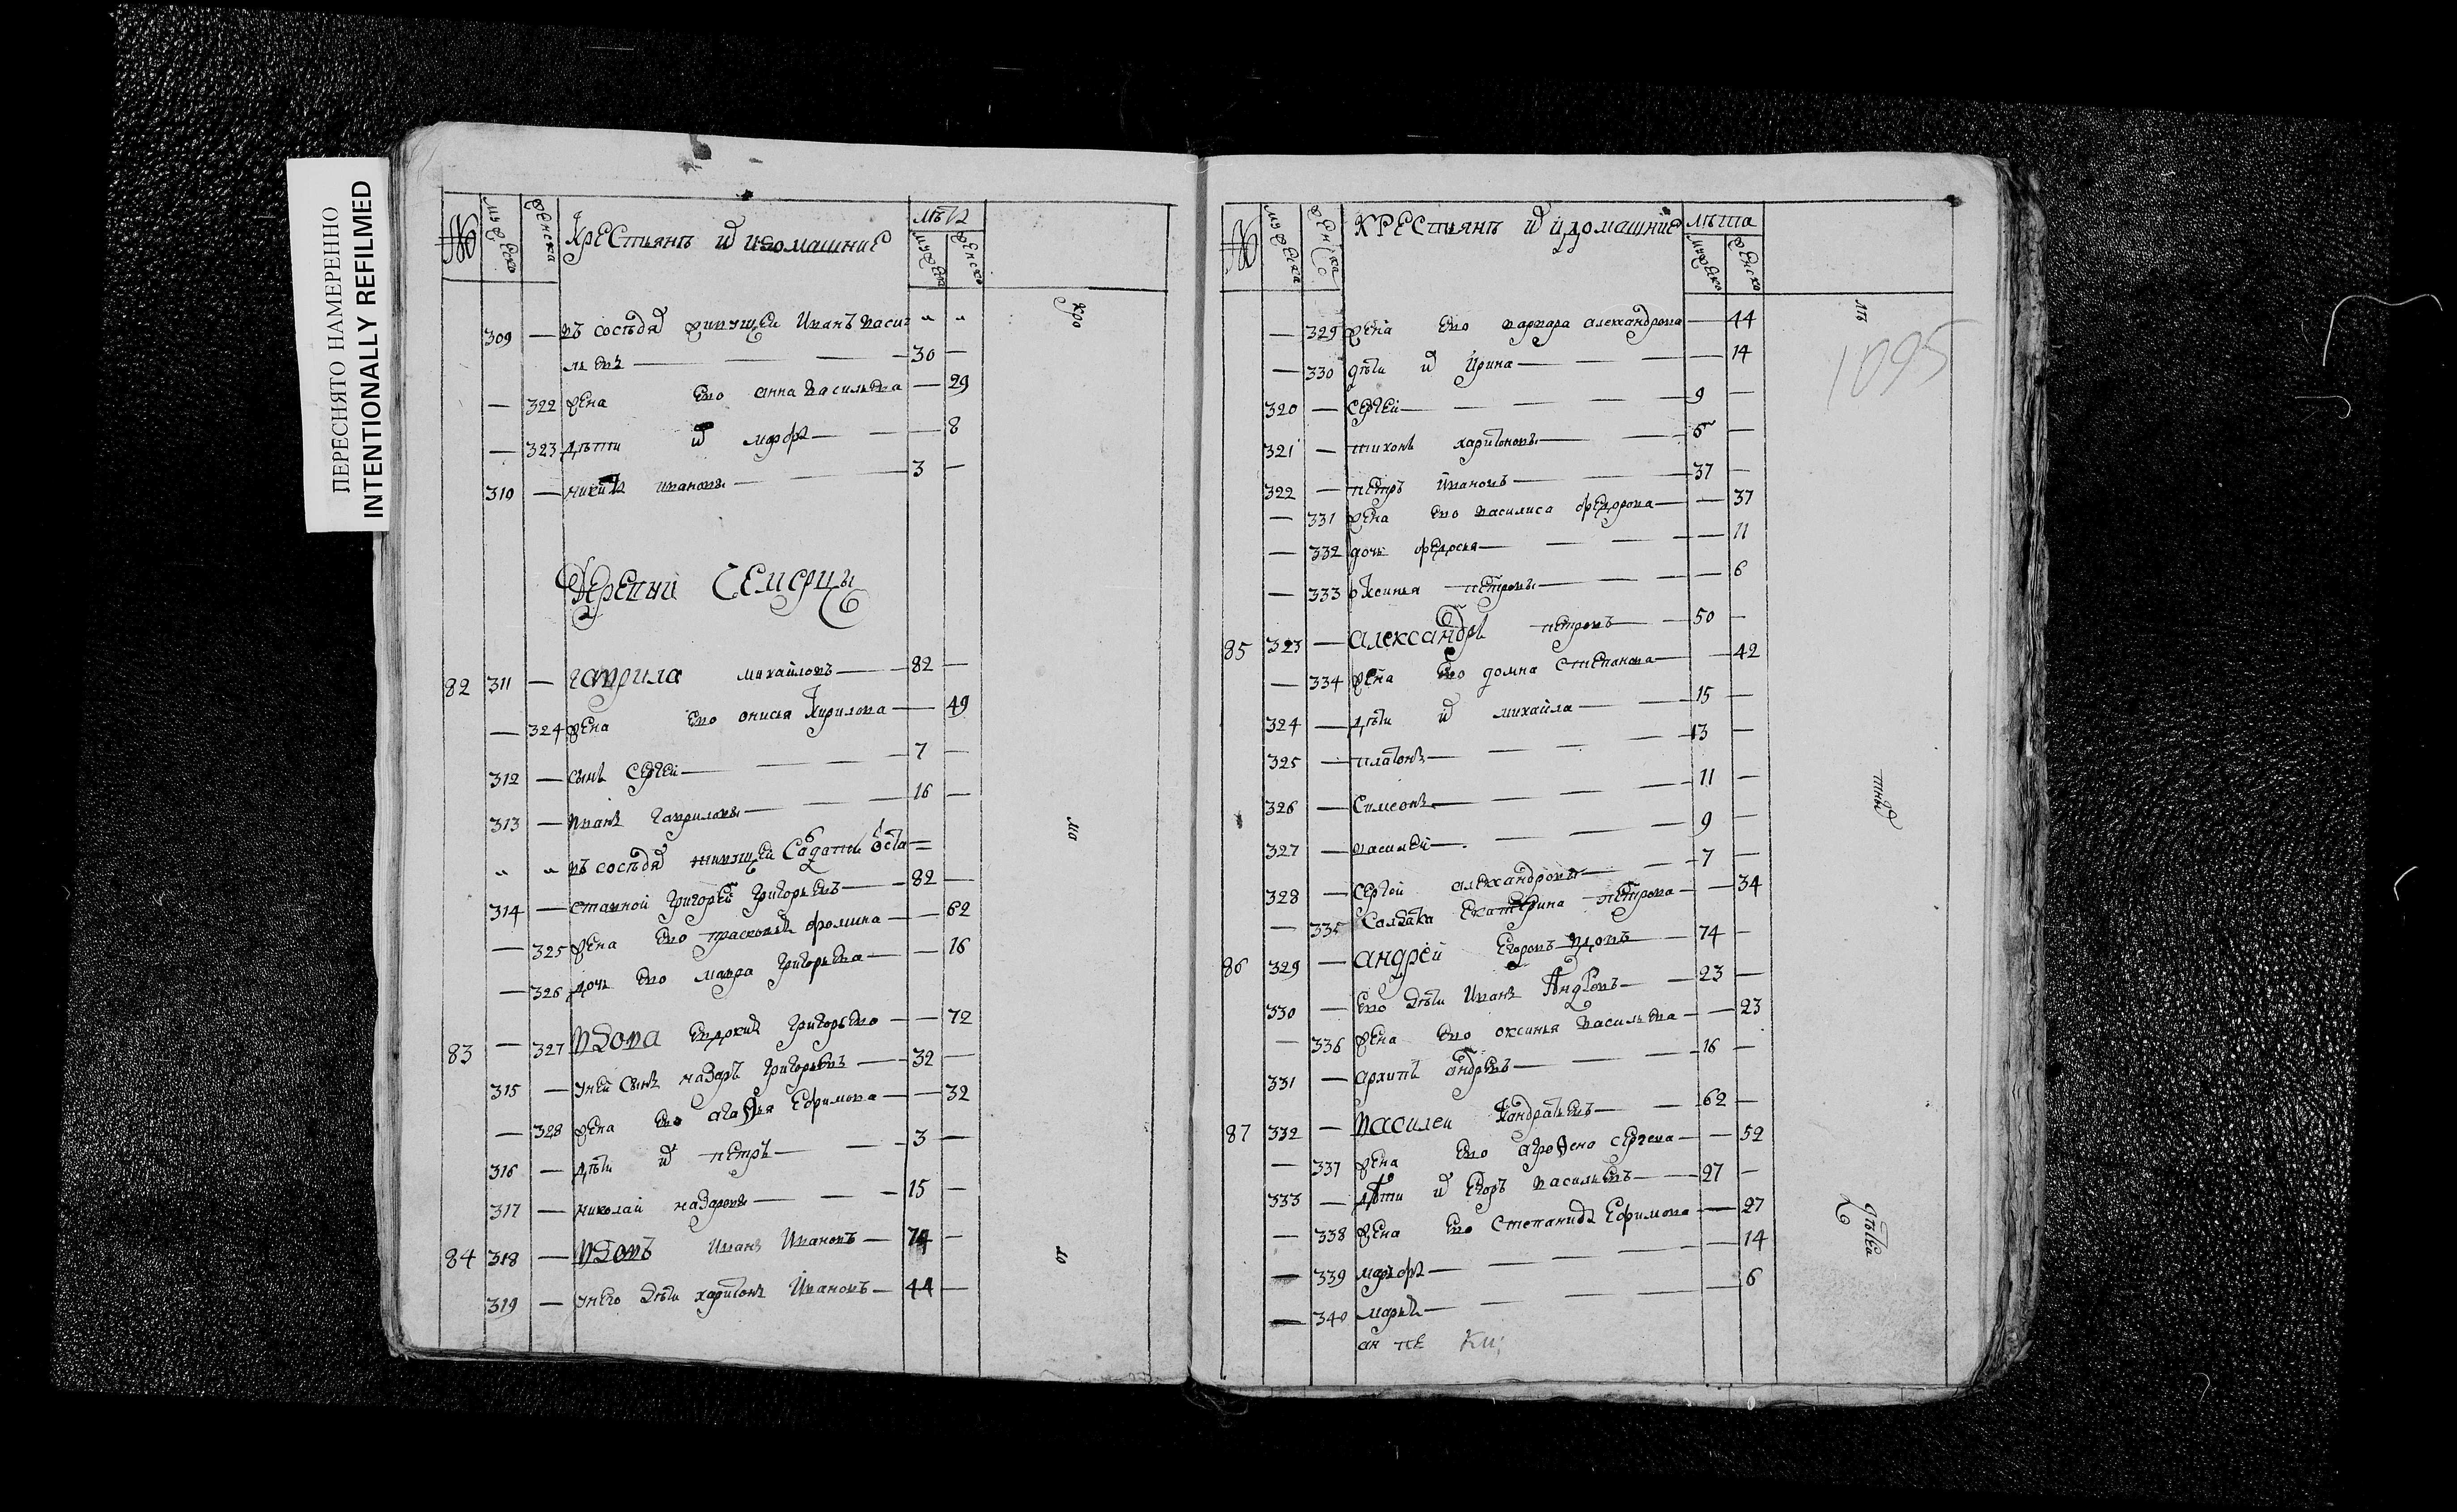 ПЕРЕСНЯТО НАМЕРЕННО
INTENTIONALLY REFILMED
№ мужеска женска Крестьянъ и ихъ домашние лѣта мужеска женско
309 — въ соседяхъ живущей Иванъ Васи " "
льевъ — 30 —
— 322 жена ево анна василева — 29
— 323 дѣти их марфа — 8
310 — никита ивановы — 3 —
Деревни Семерицы
82 311 — гаврила михаиловъ — 82 —
— 324 жена ево онисья Кирилова — 49
312 — сынъ Сергей — 7 —
313 — иванъ гавриловы — 16 —
" " въ соседяхъ живущей Солдатъ отста =
314 — ставной григорей григорьевъ — 82 —
— 325 жена ево прасковья фомина — 62
— 326 дочь ево мавра григорьева — 16
83 — 327 вдова евдокия григорьево — 72
315 — у ней сынъ назаръ григорьевъ — 32 —
— 328 жена ево агафья Ефимова — 32
316 — дѣти их петръ — 3 —
317 — николай назаровы — 15 —
84 318 — вдовъ иванъ ивановъ — 74 —
319 — у него дѣти харитонъ ивановъ — 44 —
ско
ма
ог
№ мужеска женска Крестьянъ и ихъ домашние лѣта мужеско женско
— 329 жена ево варвара александрова — 44
— 330 дѣти их ирина — 14
320 — сергей — 9 —
321 — тихонъ харитоновы — 5 —
322 — петръ ивановъ — 37 —
— 331 жена ево василиса федорова — 37
— 332 дочь федосья — 11
— 333 оксинья петровы — 6
85 323 — александръ петровъ — 50 —
— 334 жена ево домна степанова — 42
324 — дѣти их михайла — 15 —
325 — платонъ — 13 —
326 — Симеонъ — 11 —
327 — василей — 9 —
328 — сергей александровы — 7 —
— 335 Солдатка екатерина петрова — 34
86 329 — андрей егоровъ вдовъ — 74 —
330 — ево дѣти иванъ Андреевъ — 23 —
— 336 жена ево оксинья василева — 23
331 — архипъ андреевъ — 16 —
87 332 — василеи кондратьевъ — 62 —
— 337 жена ево агрофена сергеева — 52
333 — дѣти их егоръ васильевъ — 27 —
— 338 жена ево степанида Ефимова — 27
— 339 марфа — 14
— 340 марья — 6
1095